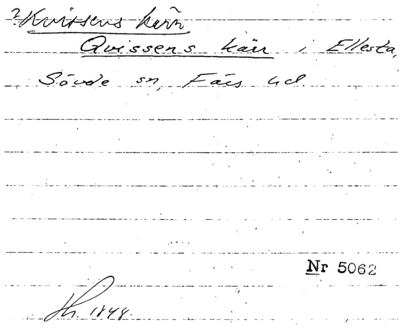 ? Kvissens kärr
Qvissens kärr i Ellesta,
Sövde sn, Färs hd
Nr 5062
1844.